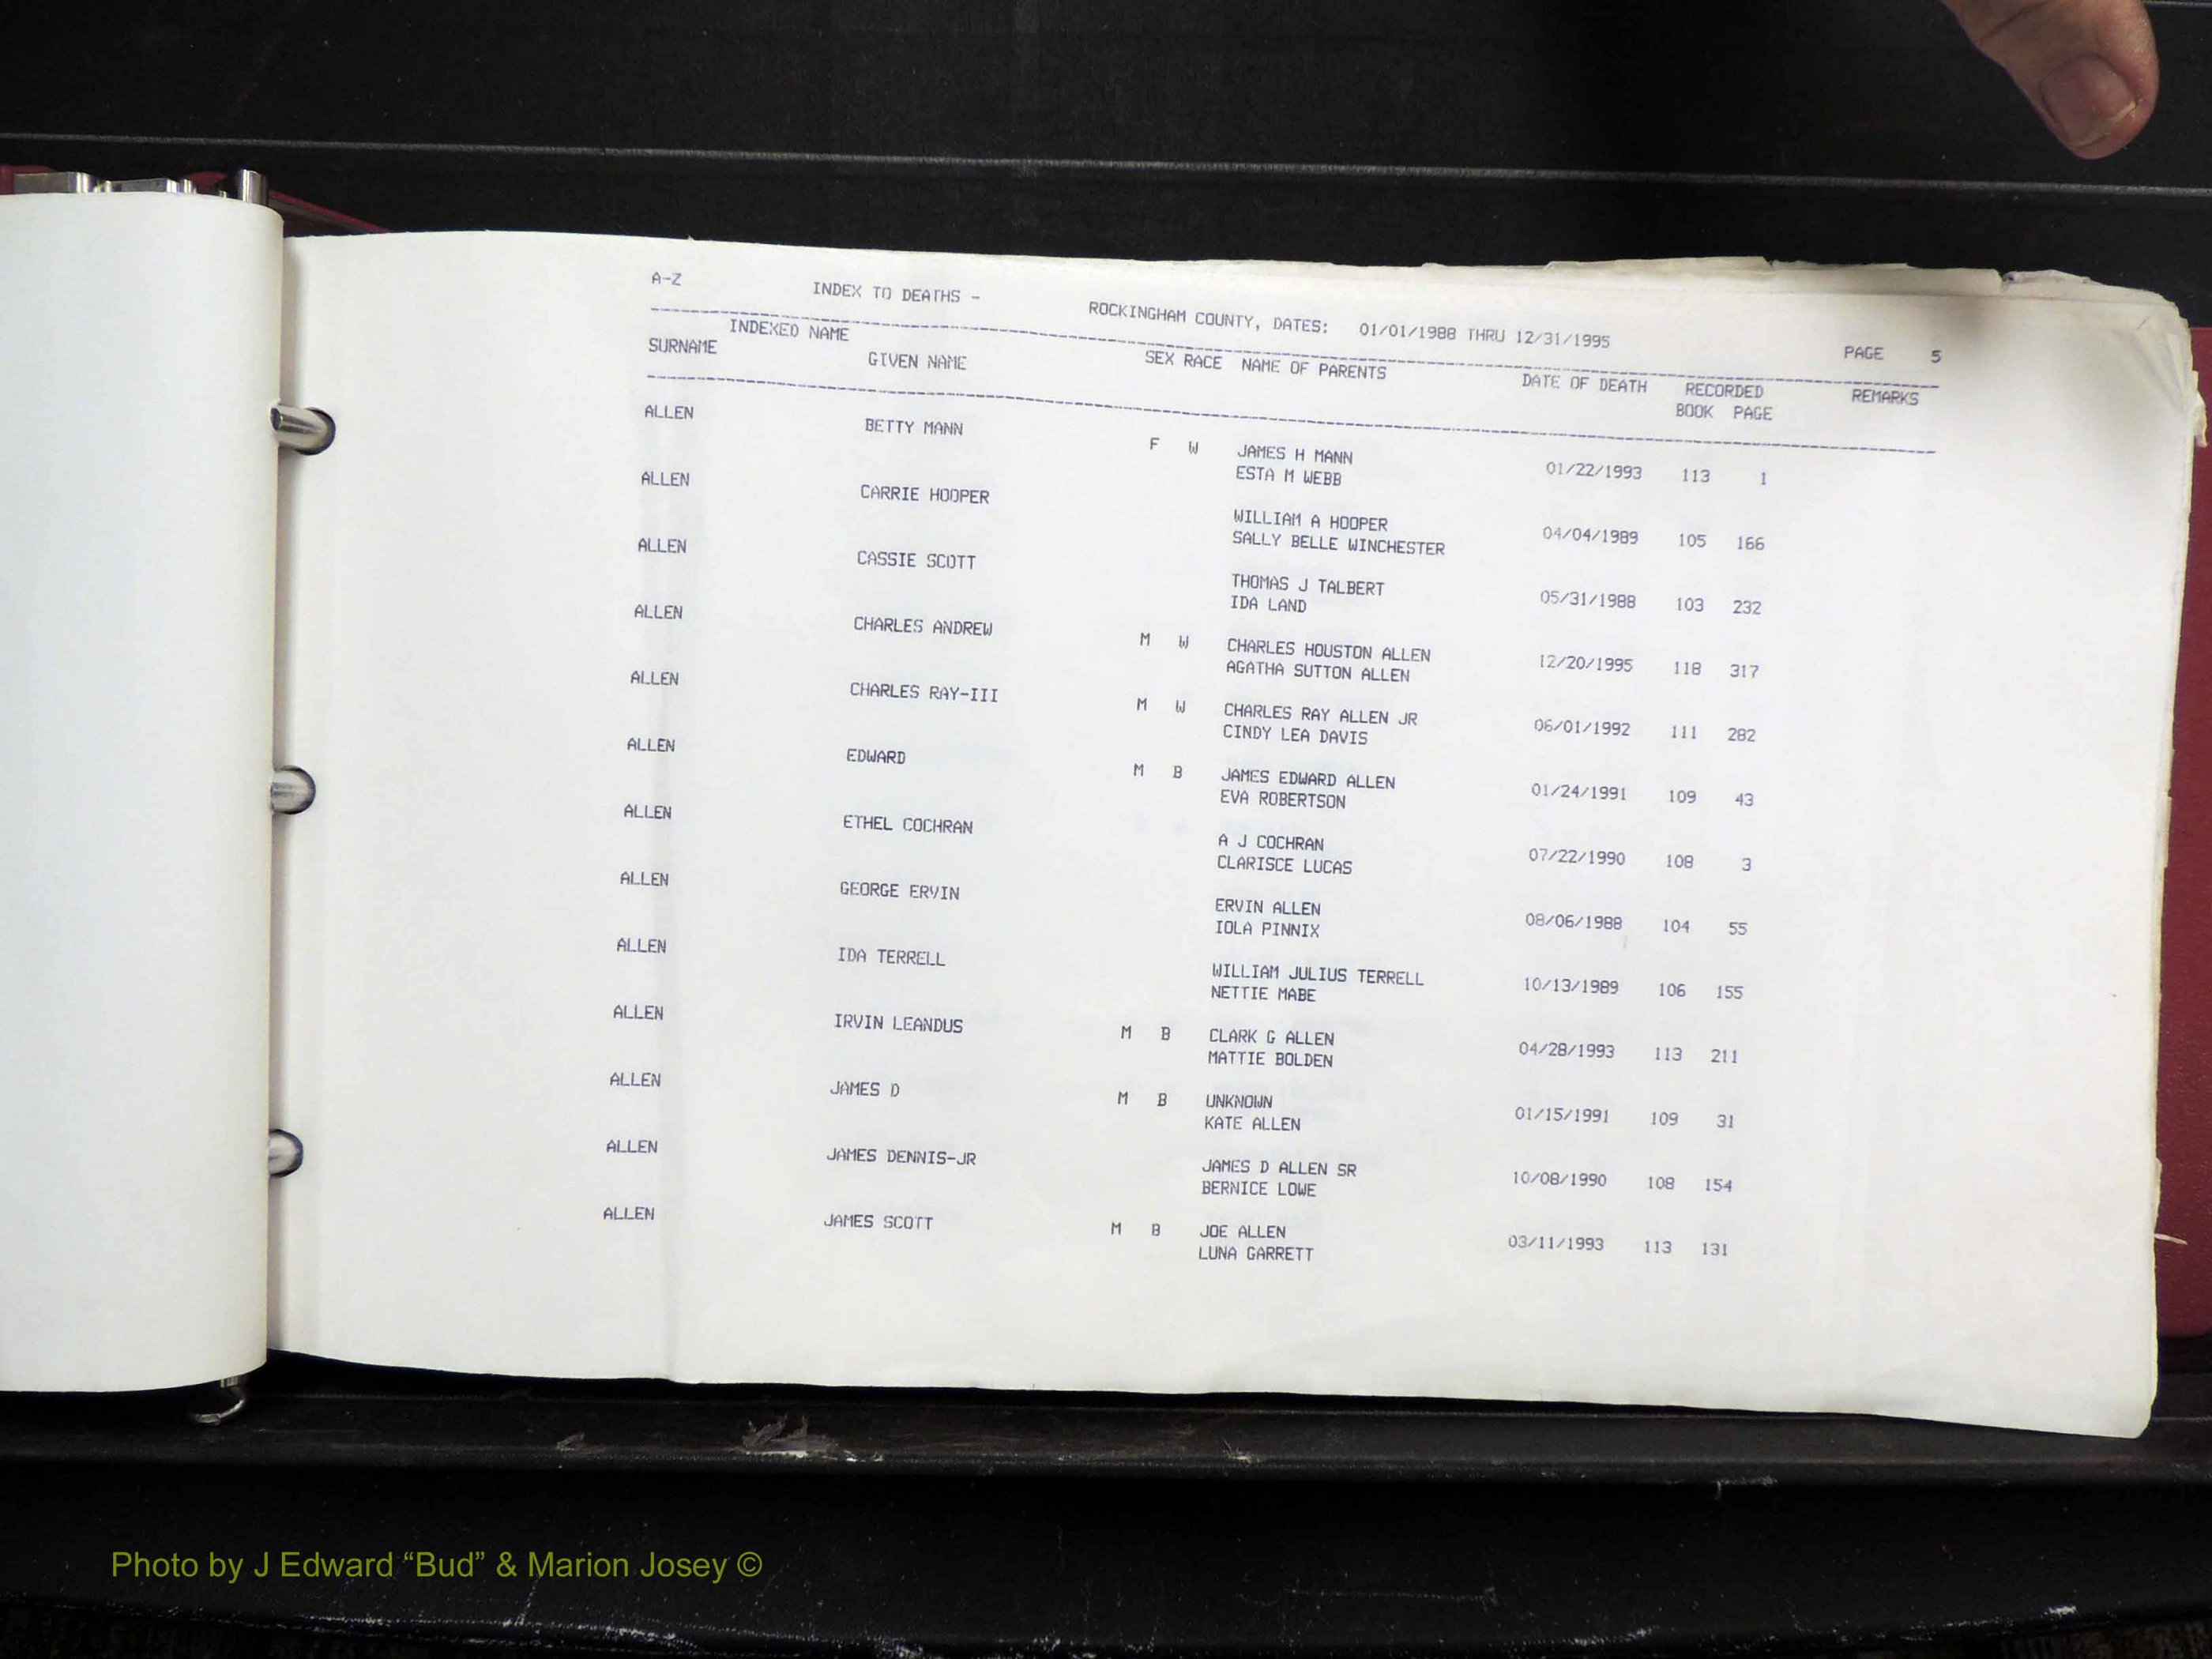 A-Z INDEX TO DEATHS - ROCKINGHAM COUNTY, DATES: 01/01/1988 THRU 12/31/1995 PAGE 5
INDEXED NAME
SURNAME GIVEN NAME SEX RACE NAME OF PARENTS DATE OF DEATH RECORDED REMARKS
BOOK PAGE
ALLEN BETTY MANN F W JAMES H MANN 01/22/1993 113 1
ESTA M WEBB
ALLEN CARRIE HOOPER WILLIAM A HOOPER 04/04/1989 105 166
SALLY BELLE WINCHESTER
ALLEN CASSIE SCOTT THOMAS J TALBERT 05/31/1988 103 232
IDA LAND
ALLEN CHARLES ANDREW M W CHARLES HOUSTON ALLEN 12/20/1995 118 317
AGATHA SUTTON ALLEN
ALLEN CHARLES RAY-III M W CHARLES RAY ALLEN JR 06/01/1992 111 282
CINDY LEA DAVIS
ALLEN EDWARD M B JAMES EDWARD ALLEN 01/24/1991 109 43
EVA ROBERTSON
ALLEN ETHEL COCHRAN A J COCHRAN 07/22/1990 108 3
CLARISCE LUCAS
ALLEN GEORGE ERVIN ERVIN ALLEN 08/06/1988 104 55
IOLA PINNIX
ALLEN IDA TERRELL WILLIAM JULIUS TERRELL 10/13/1989 106 155
NETTIE MABE
ALLEN IRVIN LEANDUS M B CLARK G ALLEN 04/28/1993 113 211
MATTIE BOLDEN
ALLEN JAMES D M B UNKNOWN 01/15/1991 109 31
KATE ALLEN
ALLEN JAMES DENNIS-JR JAMES D ALLEN SR 10/08/1990 108 154
BERNICE LOWE
ALLEN JAMES SCOTT M B JOE ALLEN 03/11/1993 113 131
LUNA GARRETT
Photo by J Edward “Bud” & Marion Josey ©